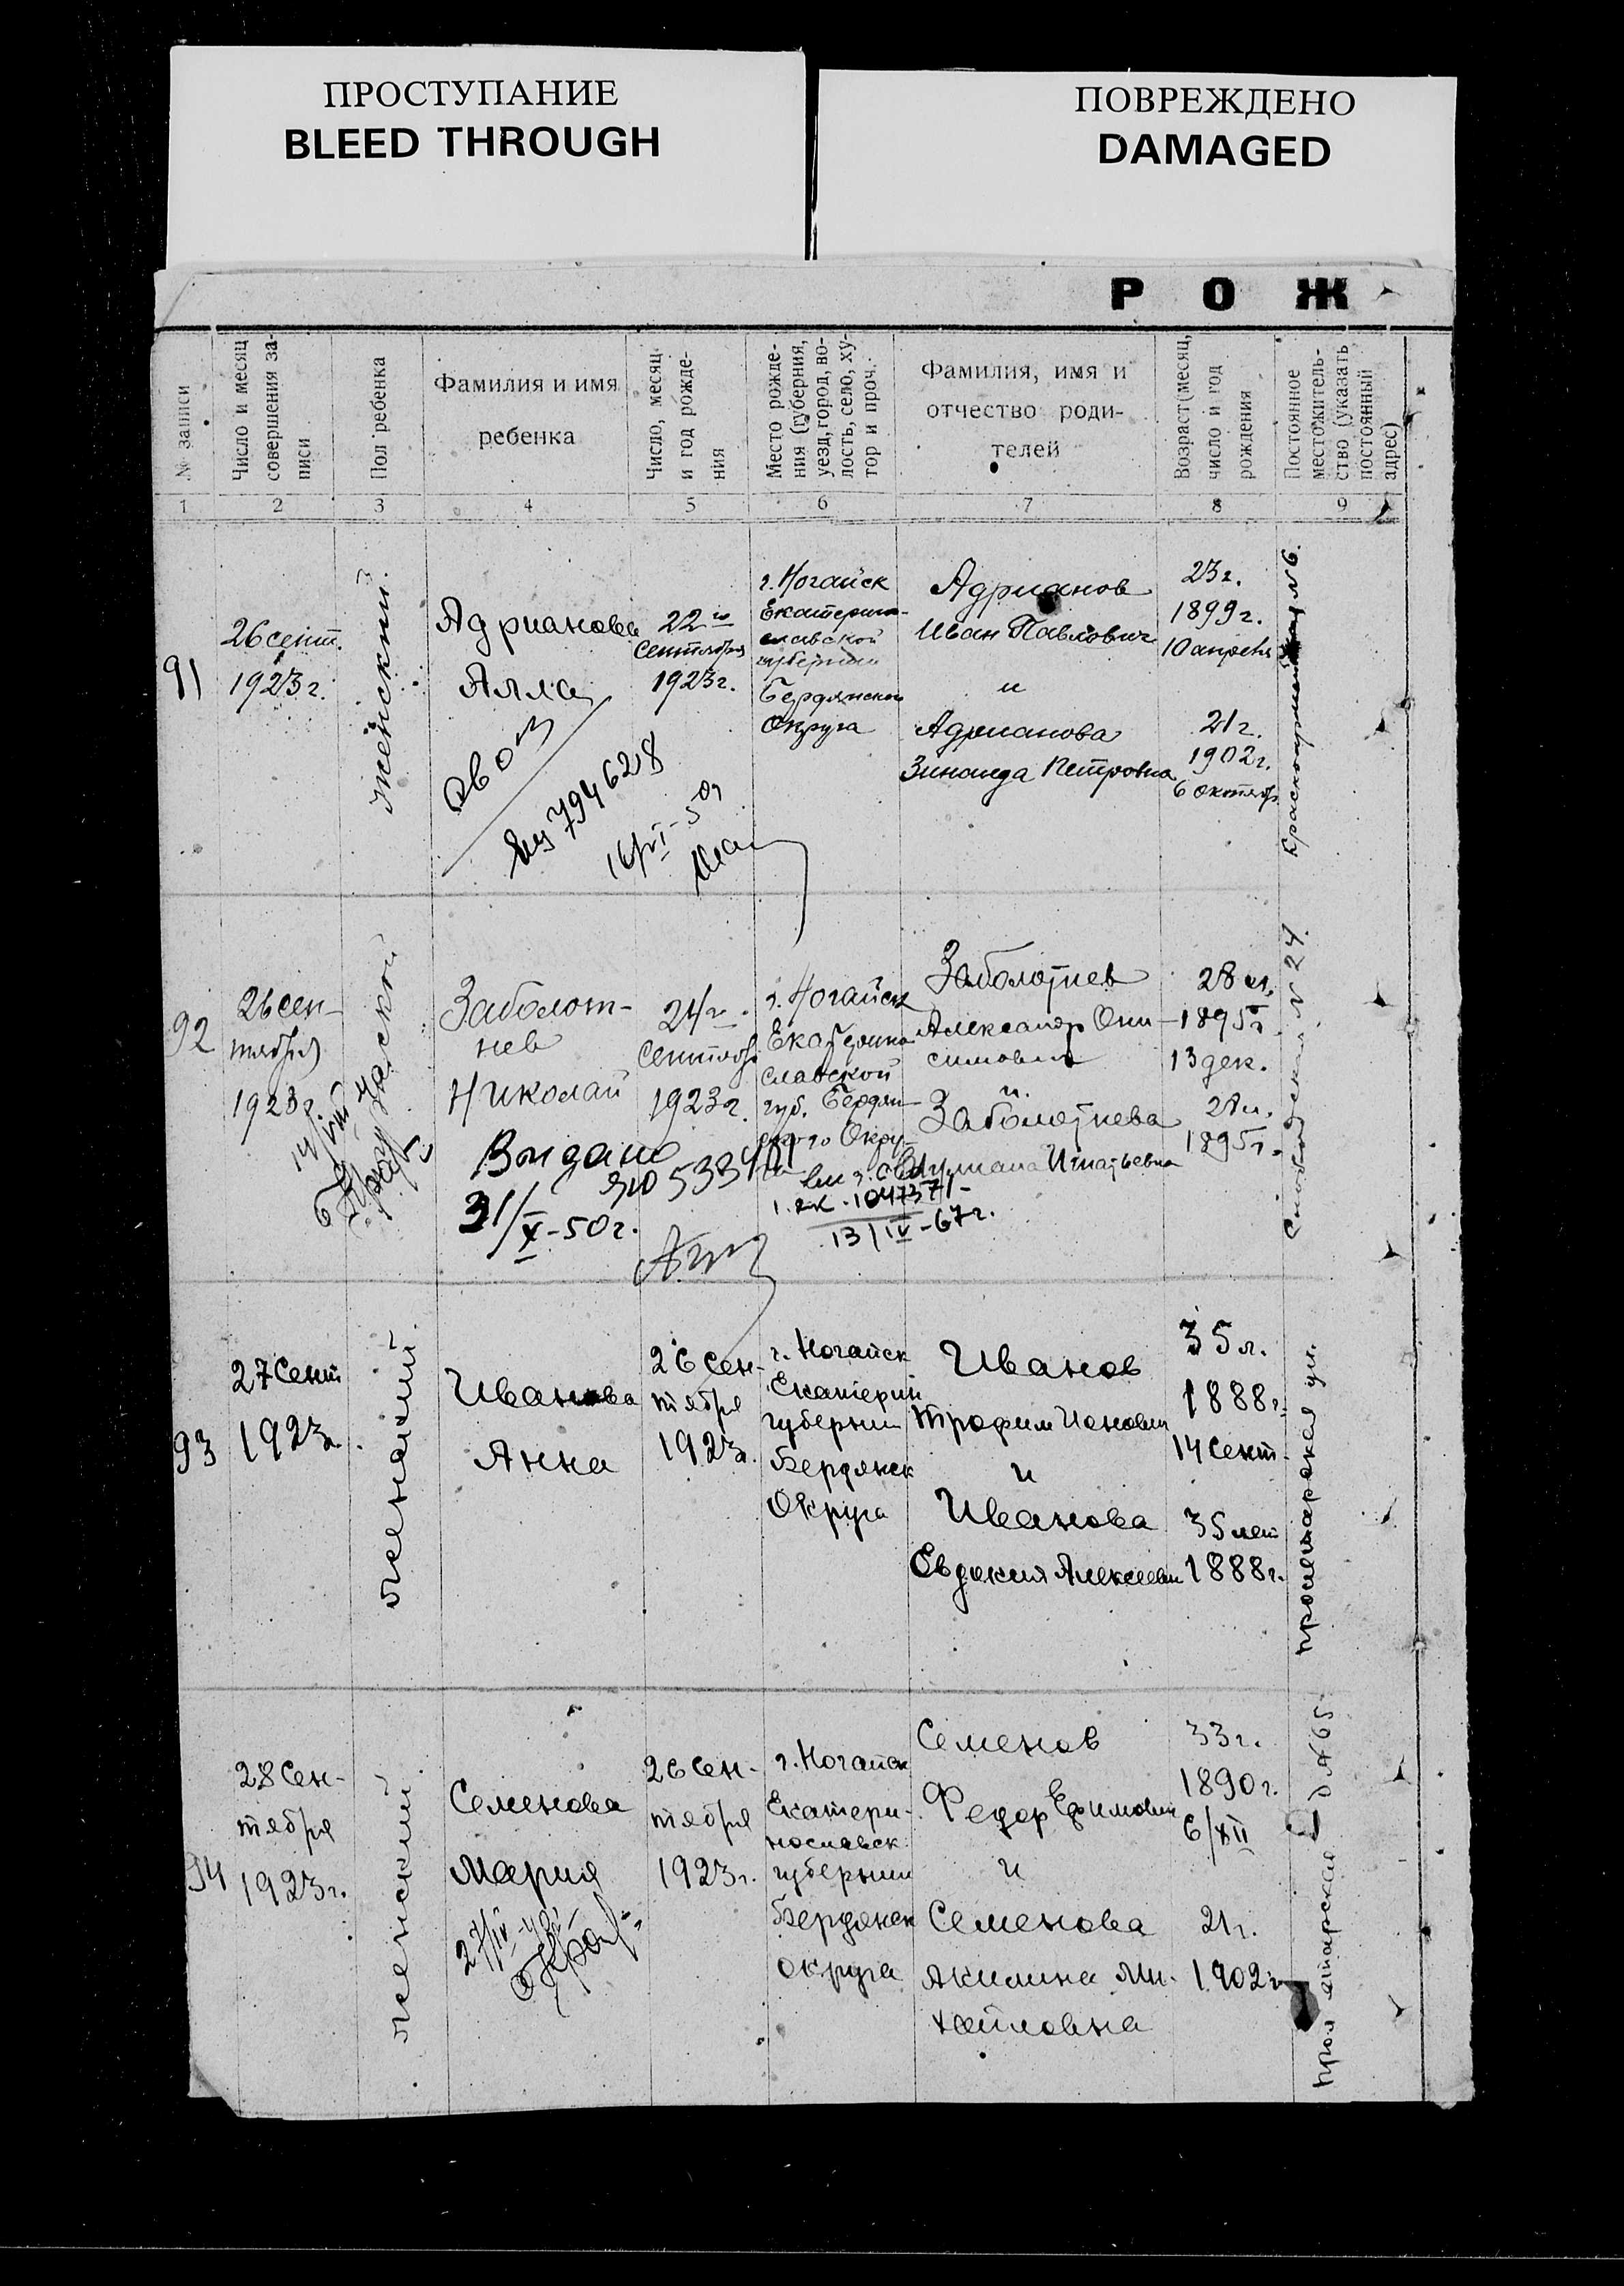 ПРОСТУПАНИЕ
BLEED THROUGH
ПОВРЕЖДЕНО
DAMAGED
Р О Ж
№ записи
Число и месяц
совершения за-
писи
Пол ребенка
Фамилия и имя
ребенка
Число, месяц
и год рожде-
ния
Место рожде-
ния (губерния,
уезд, город, во-
лость, село, ху-
тор и проч.
Фамилия, имя и
отчество роди-
телей
Возраст (месяц,
число и год
рождения
Постоянное
местожитель-
ство (указать
постоянный
адрес)
1 2 3 4 5 6 7 8 9
91
26 сент.
1923 г.
женский.
Адрианова
Алла
794628
22го
сентября
1923 г.
г. Ногайск
Екатерино-
славской
губернии
Бердянского
Округа
Адрианов
Иван Павлович
и
Адрианова
Зинаида Петровна
23 г.
1899 г.
10 апреля
21 г.
1902 г.
6 октябр
№ 6.
92
26 сен-
тября
1923 г.
мужской
Заболот-
нев
Николай
Выдано
31/X-50 г.
24го
Сентября
1923 г.
г. Ногайск
Екатерино
славской
губ. Бердян-
ского Окру-
Заболотнев
Александр Они-
симович
и
Заболотнева
Игнатьевна
13/IV-67 г.
28 л.
1895 г.
13 дек.
28 л.
1895 г.
Слободская № 24.
93
27 Сент
1923 г.
женский.
Иванова
Анна
26 Сен-
тября
1923 г.
г. Ногайск
Екатерин
губернии
Бердянск
Округа
Иванов
Трофим Иванович
и
Иванова
Евдокия Алексеевн
35 л.
1888 г.
14 Сент.
35 лет
1888 г.
пролетарская ул.
94
28 Сен-
тября
1923 г.
женский.
Семенова
Мария
26 Сен-
тября
1923 г.
г. Ногайск
Екатери-
нославск.
губернии
Бердянск
округа
Семенов
Федор Ефимович
и
Семенова
Акилина Ми-
хайловна
33 г.
1890 г.
6/XII
21 г.
1902 г.
пролетарская д № 65